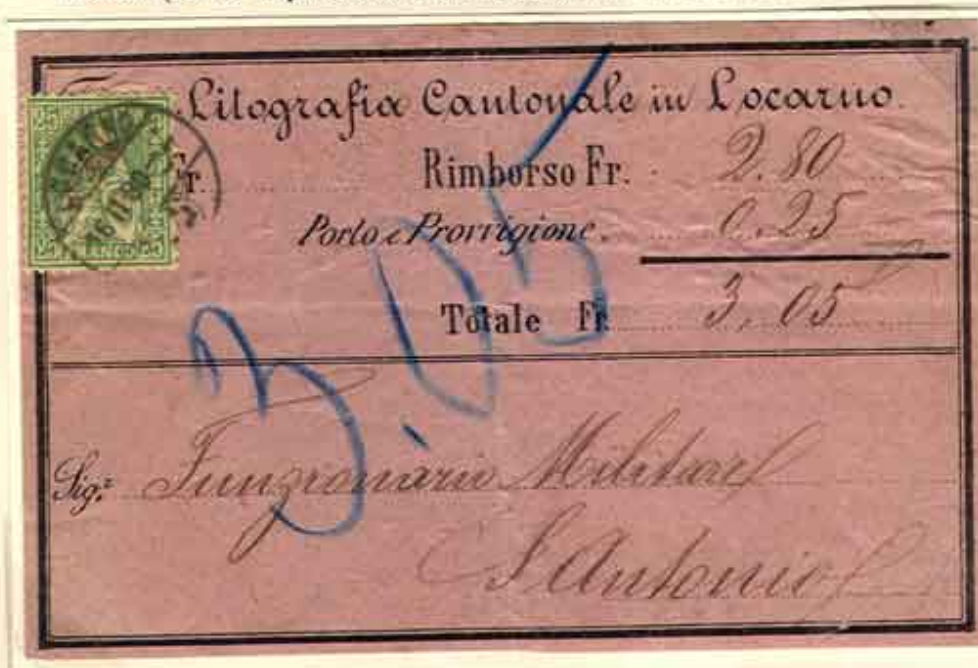 Litografia Cantonale in Locarno.
Fr. Rimborso Fr. 2.80
Porto e Provvigione. 0.25
Totale Fr. 3.05
3.05
Sig.r Funzionario Militare
S. Antonio
25 25
FRANCO